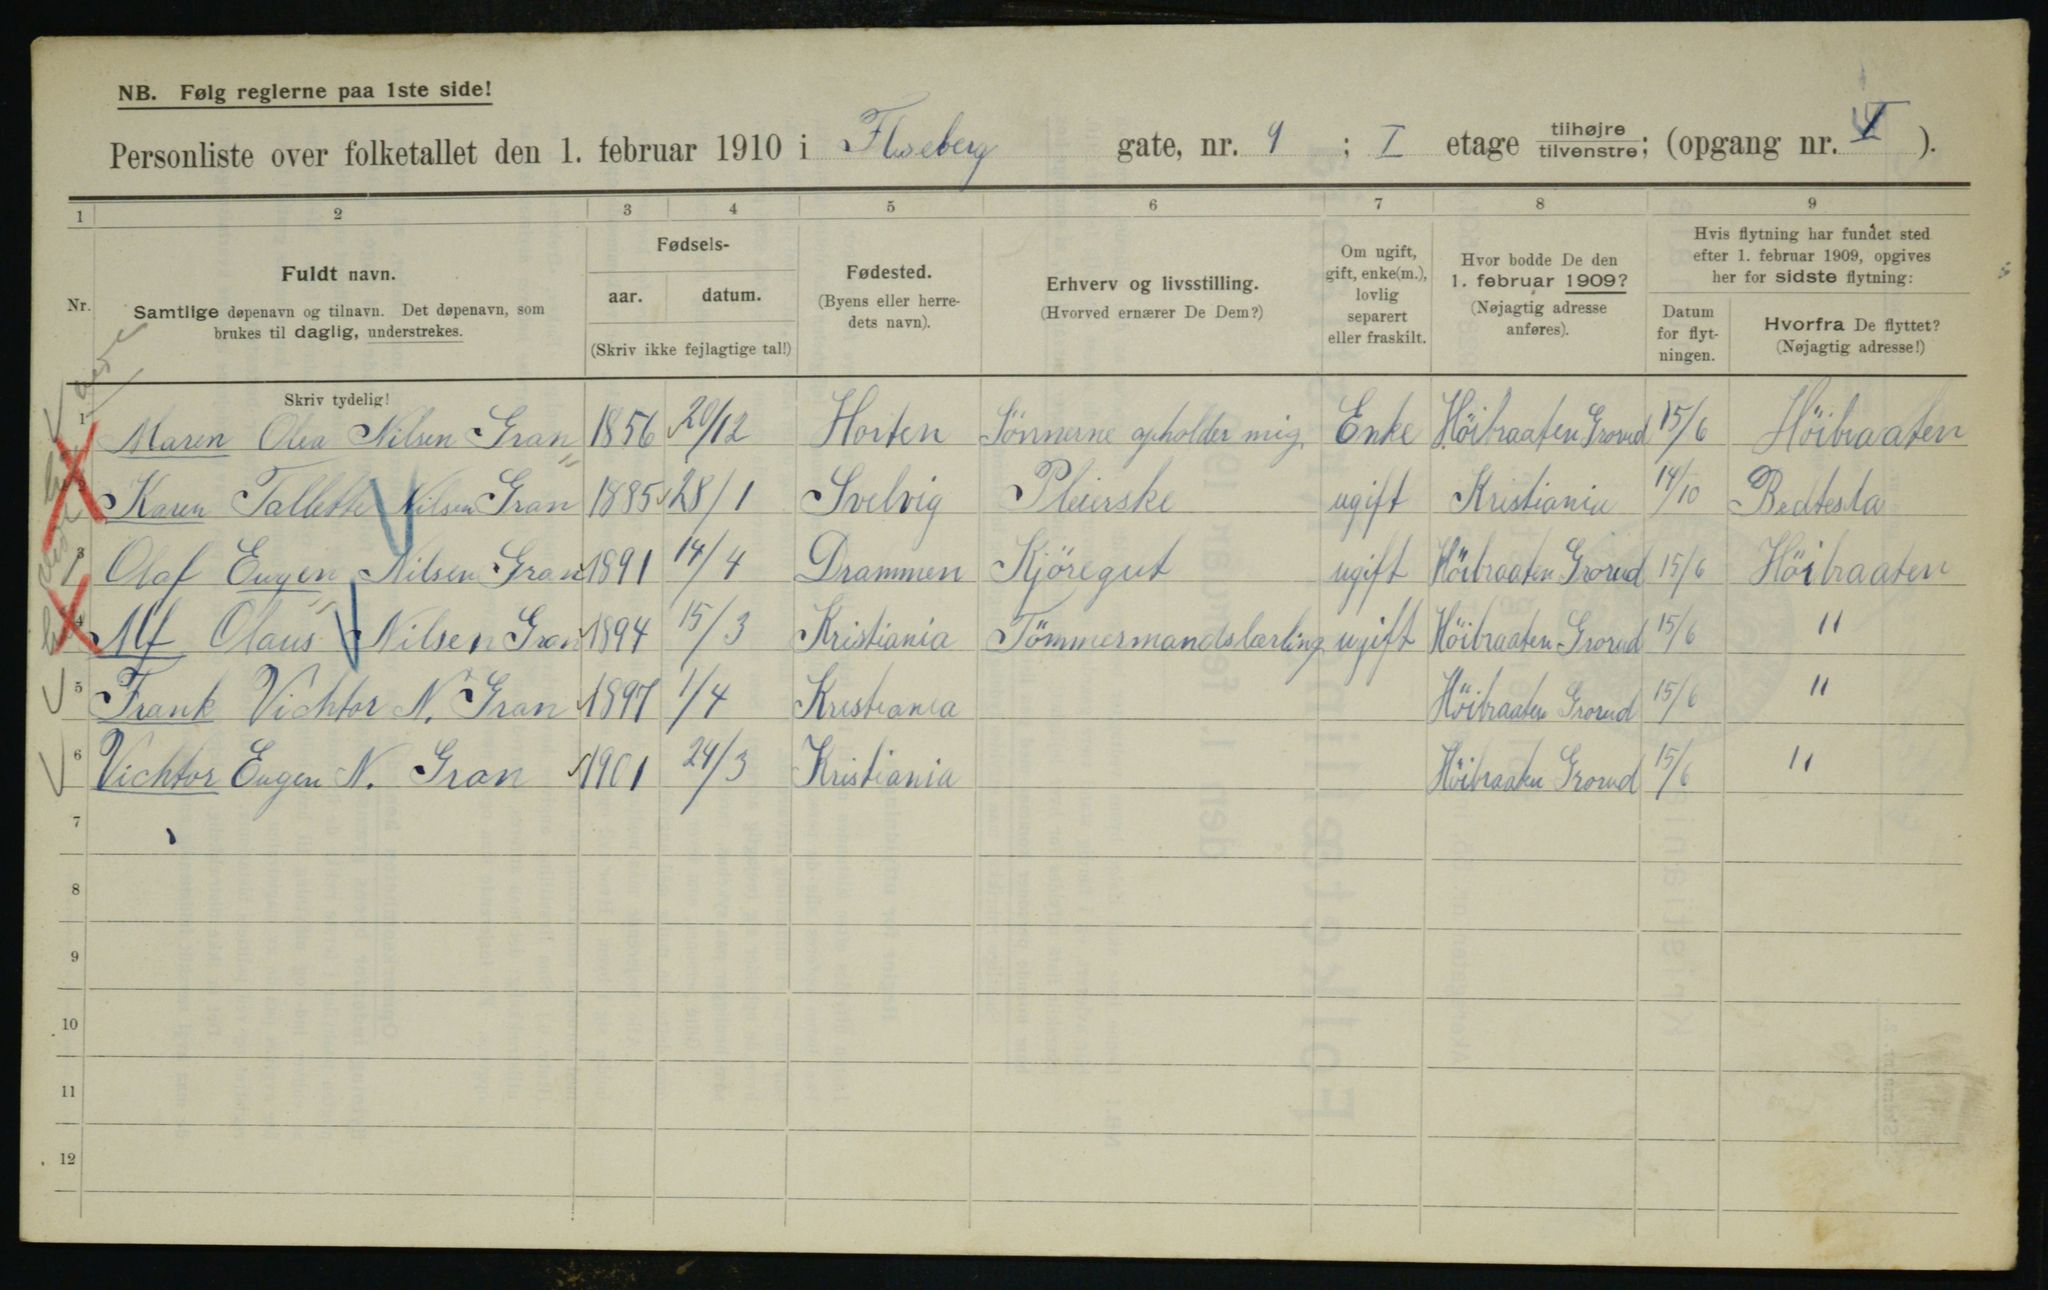 NB. Følg reglerne paa 1ste side!
Personliste over folketallet den 1. februar 1910 i gate, nr. 9 ; I etage tilhøjre tilvenstre; (opgang nr. ).
1 2 3 4 5 6 7 8 9
Nr.
Fuldt navn.
Samtlige døpenavn og tilnavn. Det døpenavn, som
brukes til daglig, understrekes.
Fødsels-
aar. datum.
(Skriv ikke fejlagtige tal!)
Fødested.
(Byens eller herre-
dets navn).
Erhverv og livsstilling.
(Hvorved ernærer De Dem?)
Om ugift,
gift, enke(m.),
lovlig
separert
eller fraskilt.
Hvor bodde De den
1. februar 1909?
(Nøjagtig adresse
anføres).
Hvis flytning har fundet sted
efter 1. februar 1909, opgives
her for sidste flytning:
Datum
for flyt-
ningen.
Hvorfra De flyttet?
(Nøjagtig adresse!)
Skriv tydelig!
1 Maren Olea Nilsen Gran 1856 20/12 Horten Sönnerne opholder mig Enke Höibraaten Grorud 15/6 Höibraaten
2 Karen Nilsen Gran 1885 28/1 Svelvig Pleierske ugift Kristiania 14/10 Bedtesta
3 Olaf Eugen Nilsen Gran 1891 14/4 Drammen Kjöregut ugift Höibraaten Grorud 15/6 Höibraaten
4 Alf Olaus Nilsen Gran 1894 15/3 Kristiania Tömmermandslærling ugift Höibraaten Grorud 15/6 "
5 Frank Vichtor N. Gran 1897 1/4 Kristiania Höibraaten Grorud 15/6 "
6 Vichtor Eugen N. Gran 1901 24/3 Kristiania Höibraaten Grorud 15/6 "
7
8
9
10
11
12